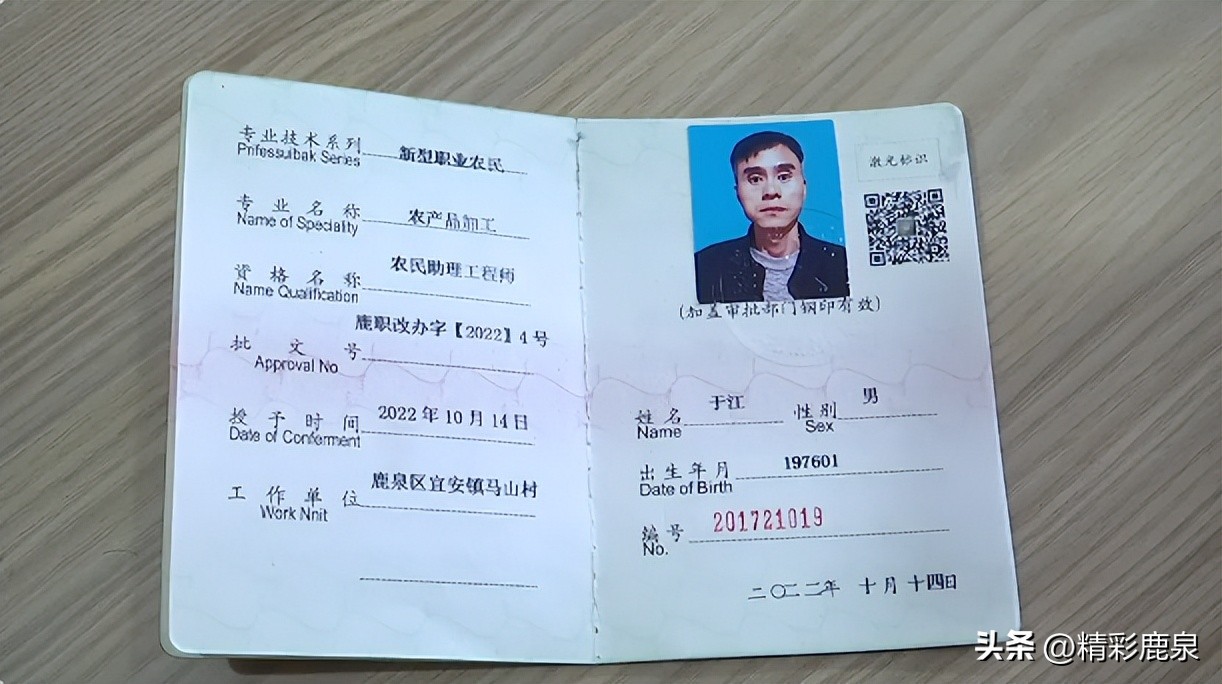 专业技术系列 新型职业农民
Pnfessuibak Series
专业名称 农产品加工
Name of Speciality
资格名称 农民助理工程师
Name Qualification
批文号 鹿职改办字【2022】4号
Approval No
授予时间 2022年10月14日
Date of Conferment
工作单位 鹿泉区宜安镇马山村
Work Nnit
激光标识
(加盖审批部门钢印有效)
姓名 于江 性别 男
Name Sex
出生年月 197601
Date of Birth
编号 201721019
No.
二〇二二年 十月 十四日
头条 @精彩鹿泉